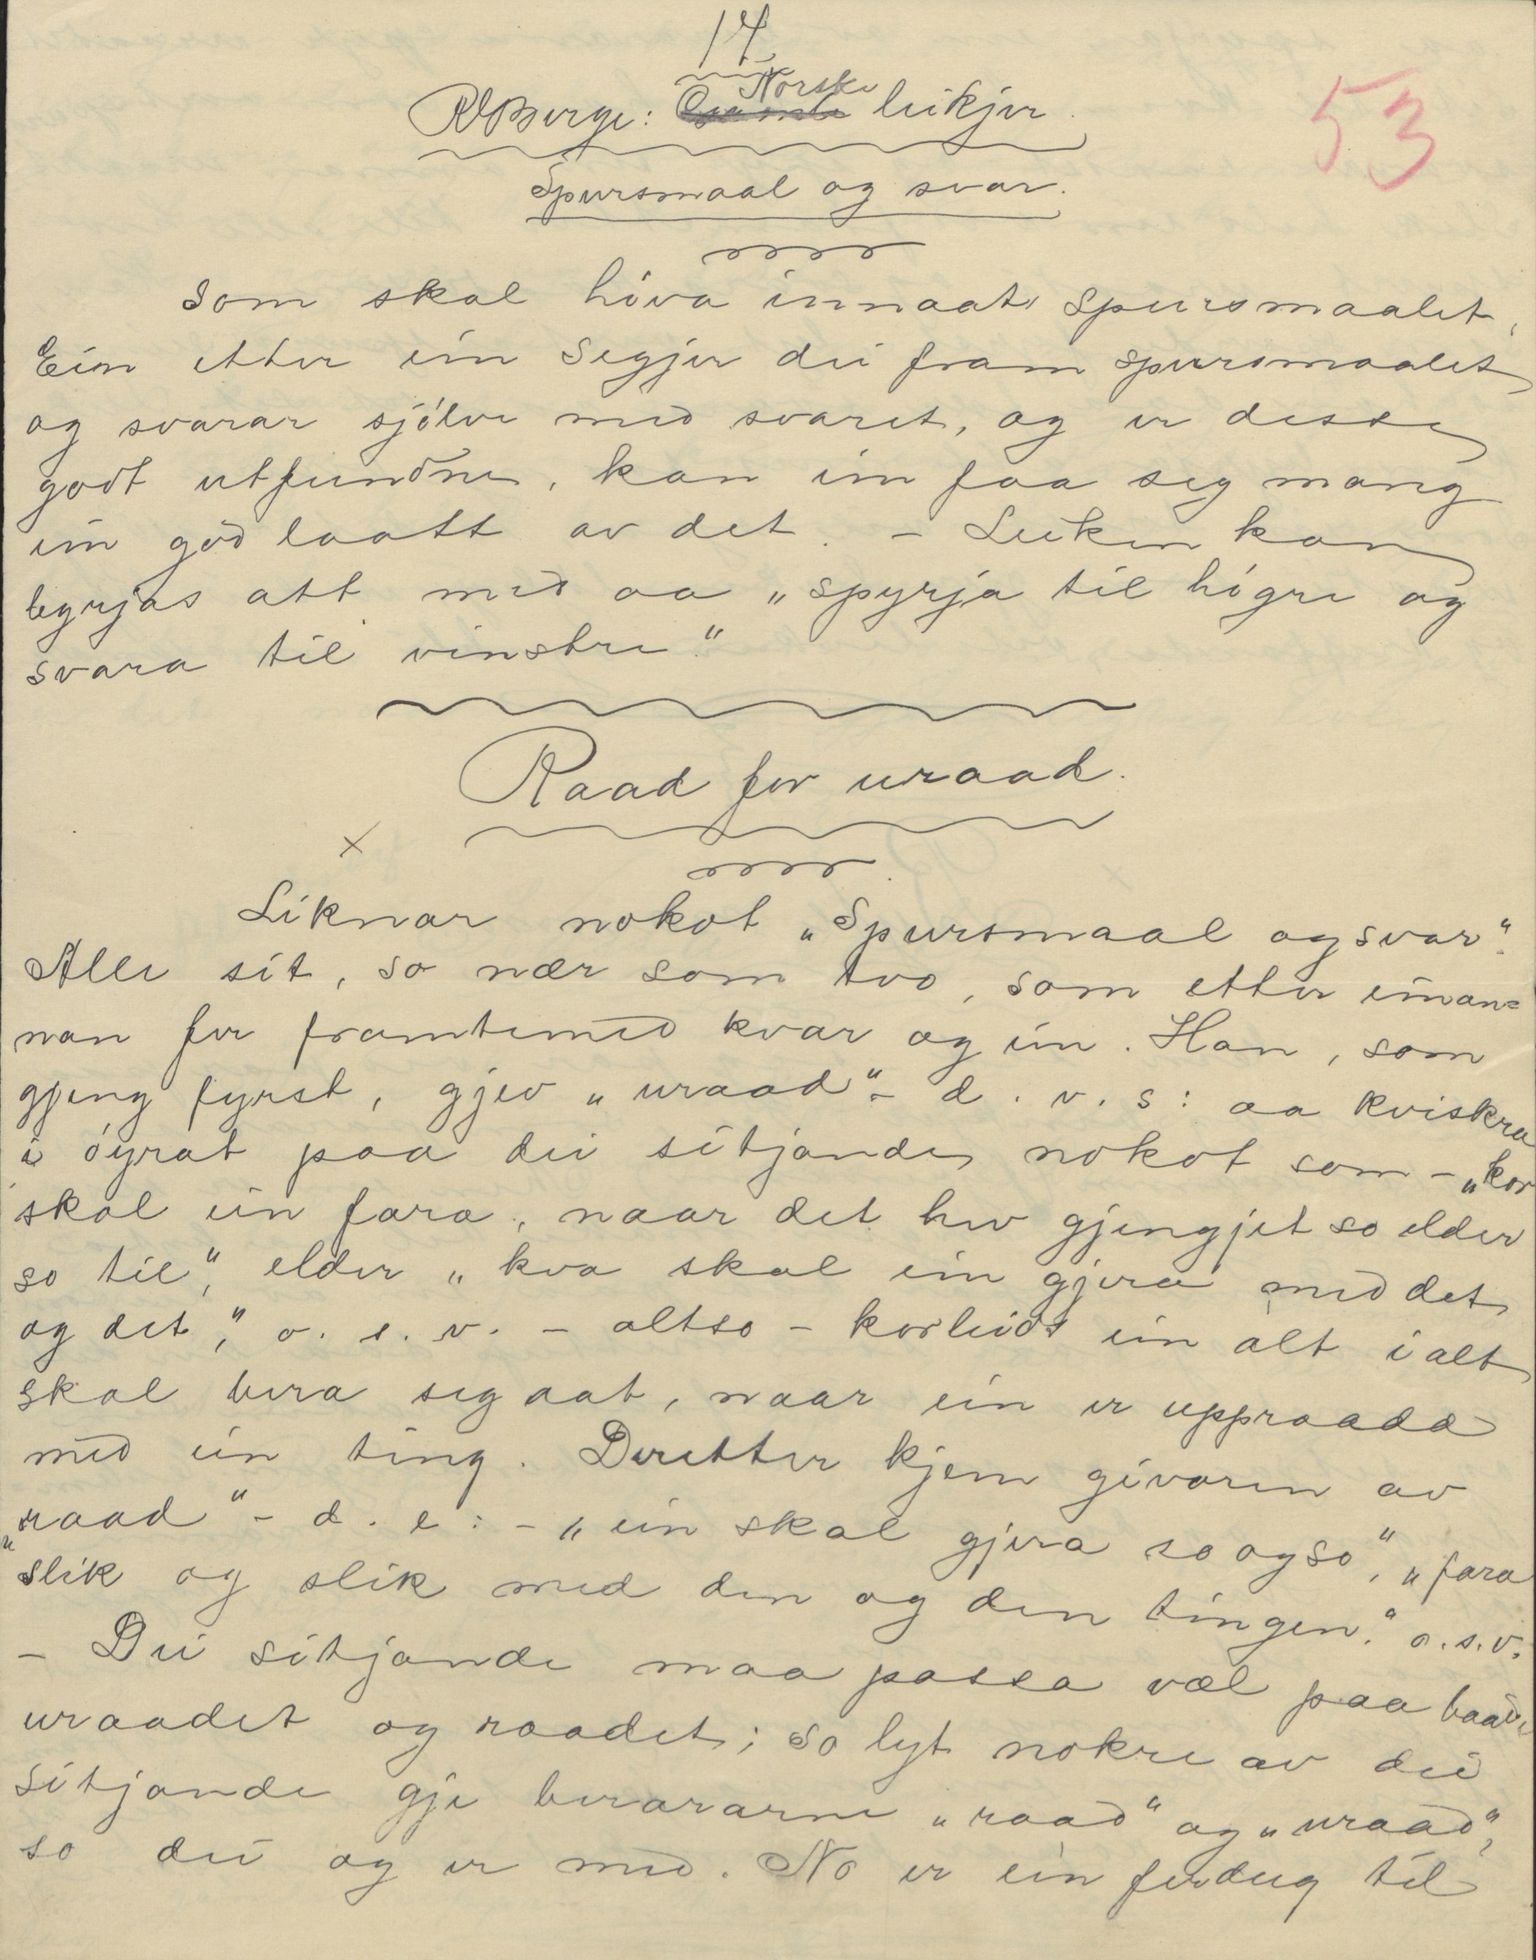 14
53
RBerge: Norske leikjer.
Spursmaal og svar.
som skal høva innaat spursmaalet.
Ein etter ein segjer dei fram spursmaalet
og svarar sjølve med svaret, og er desse
godt utfundne, kan ein faa seg mang
ein god laatt av det. - Leiken kan
byrjas att med aa „spyrja til høgre og
svara til vinstre."
Raad for uraad.
x
Liknar nokot „Spursmaal og svar".
Alle sit, so nær som tvo, som etter einan=
nan fer framtemed kvar og ein. Han, som
gjeng fyrst, gjev „uraad" - d. v. s: aa kviskra
i øyrat paa dei sitjande nokot som - „kor
skal ein fara, naar det hev gjengjet so elder
so til", elder „kva skal ein gjera med det
og det", o. s. v. - altso - korleids ein alt i alt
skal bera seg aat, naar ein er uppraadd
med ein ting. Deretter kjem givaren av
„raad" - d. e: - „ein skal gjera so og so", „fara
slik og slik med den og den tingen." o.s.v.
- Dei sitjande maa passa væl paa baade
uraadet og raadet; so lyt nokre av dei
sitjande gje berararne „raad" og „uraad",
so dei og er med. No er ein ferdug til